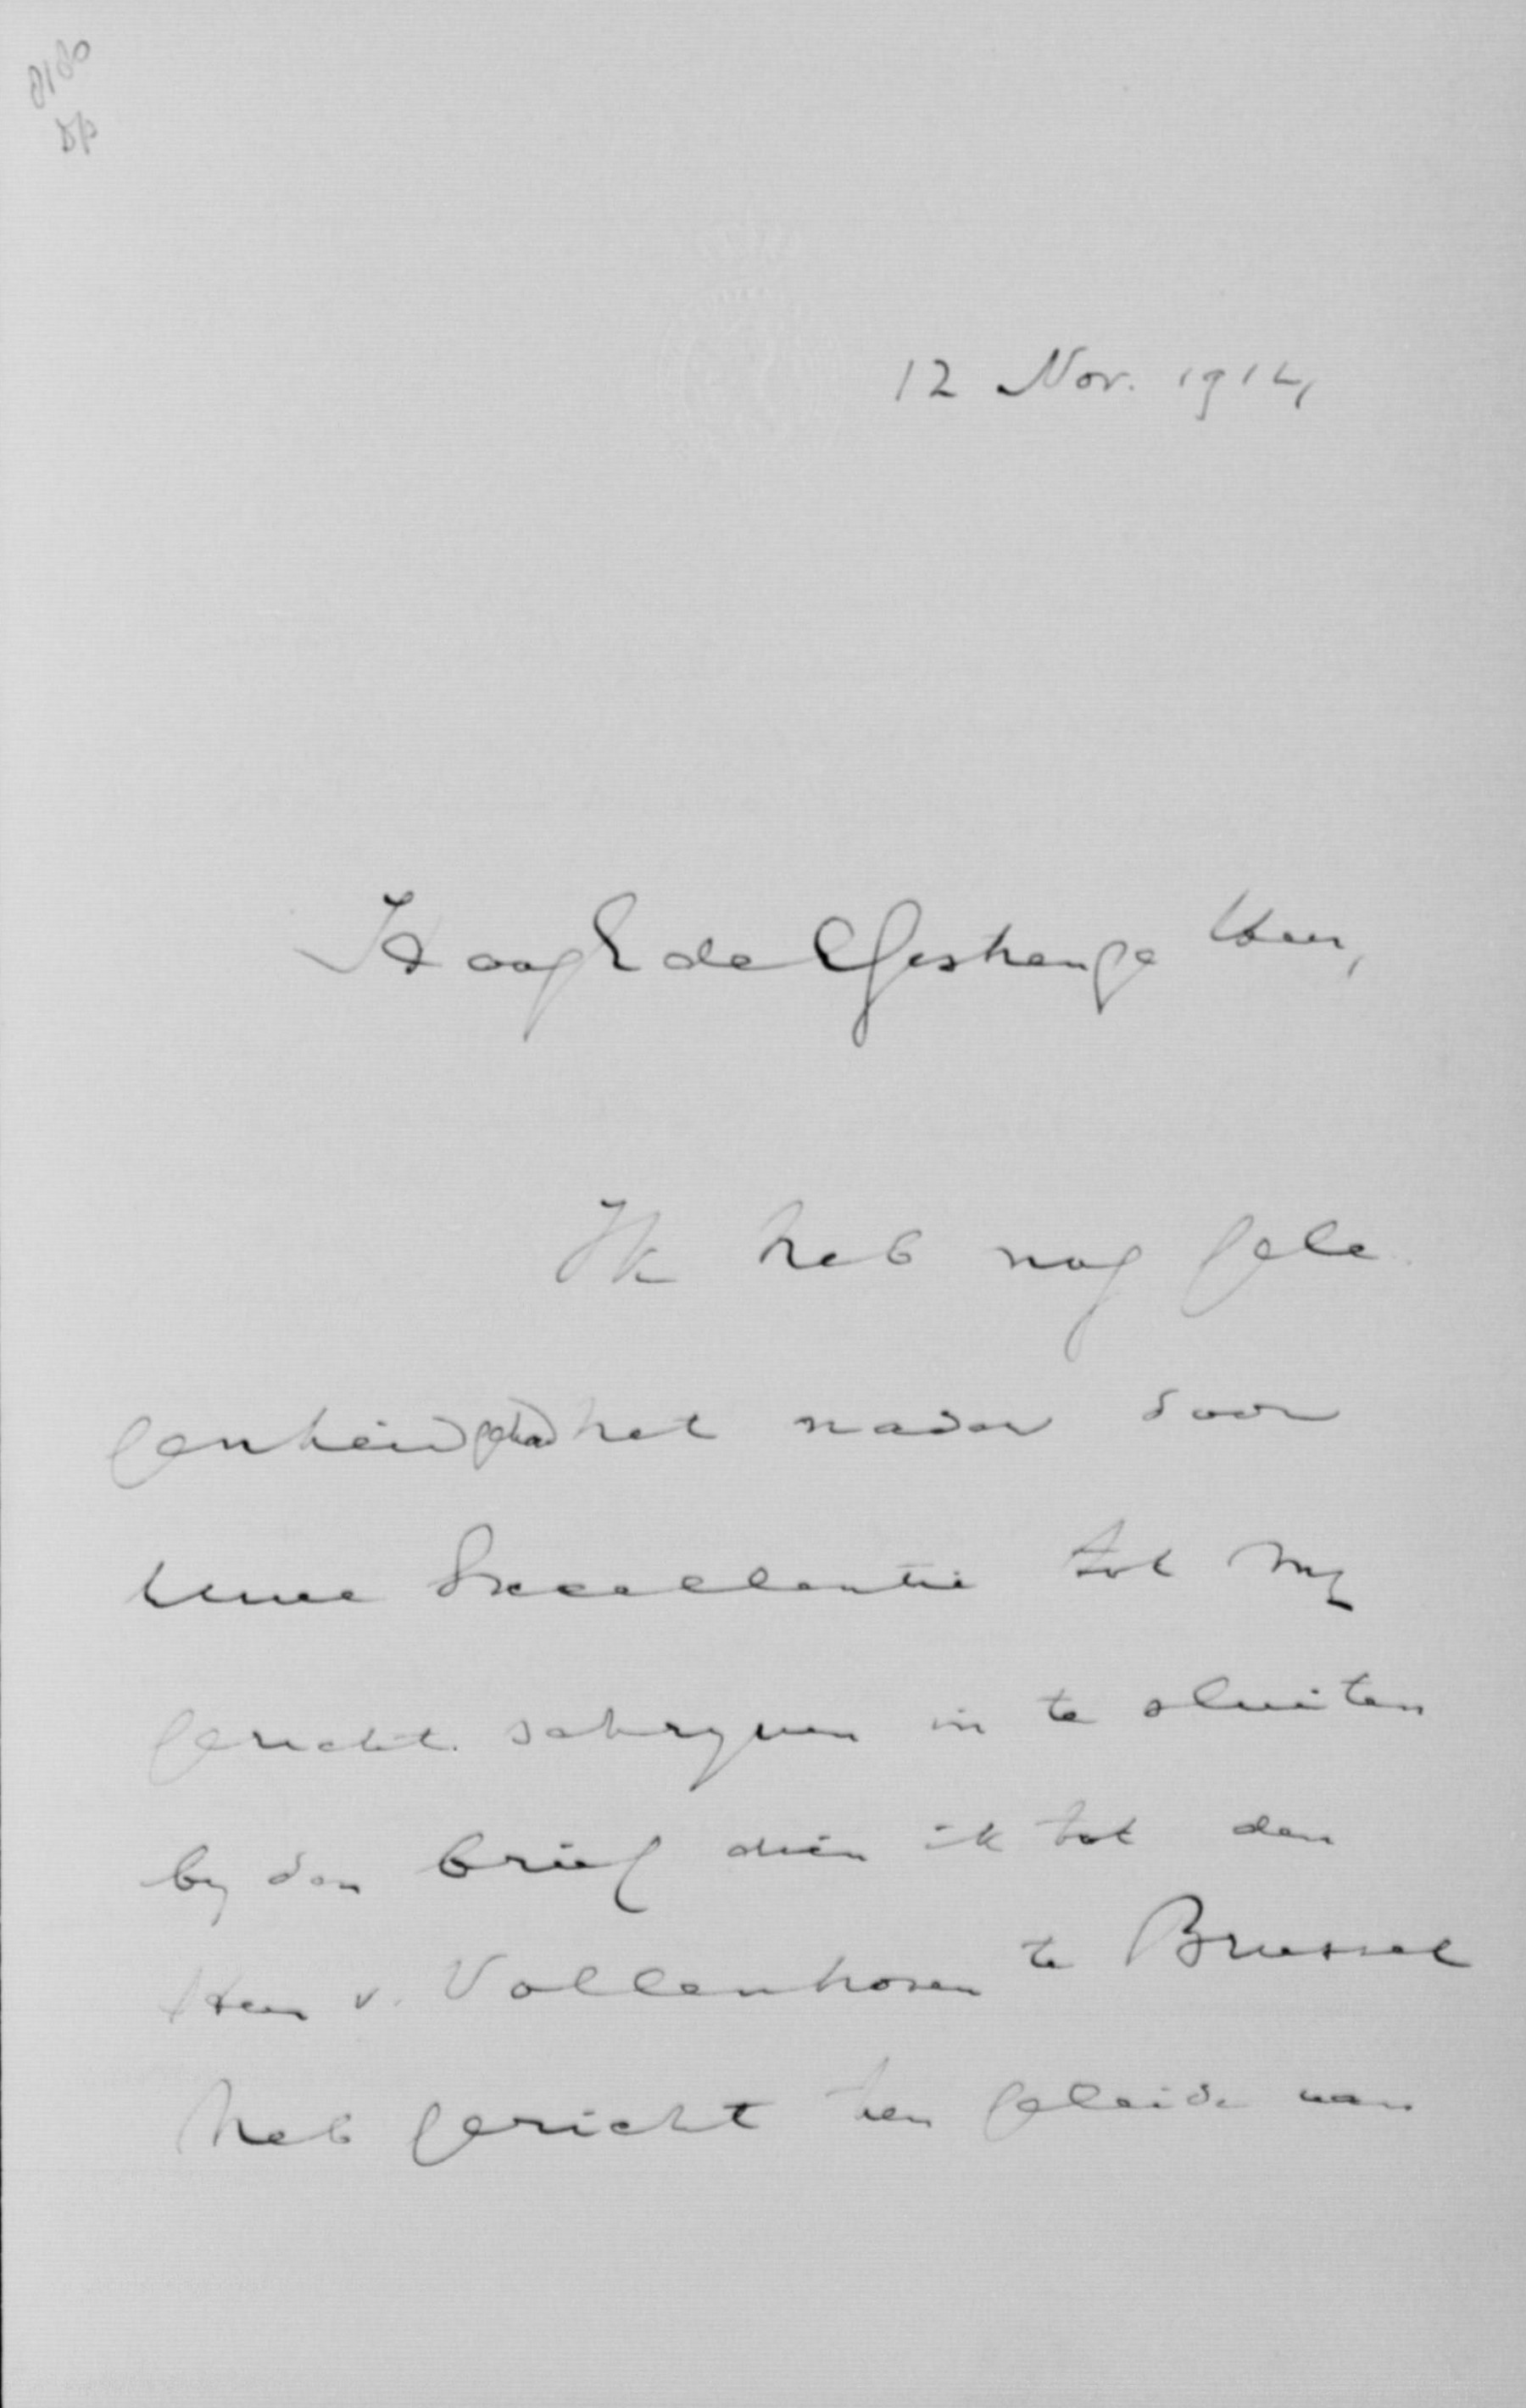 12 Nov. 1914
HoogEdelGestrenge Heer,
Ik heb nog gele
genheid gehad het nader door
Uwe Excellentie tot my
gericht schryven in te sluiten
by den brief dien ik tot den
Heer v. Vollenhoven te Brussel
heb gericht ten geleide van